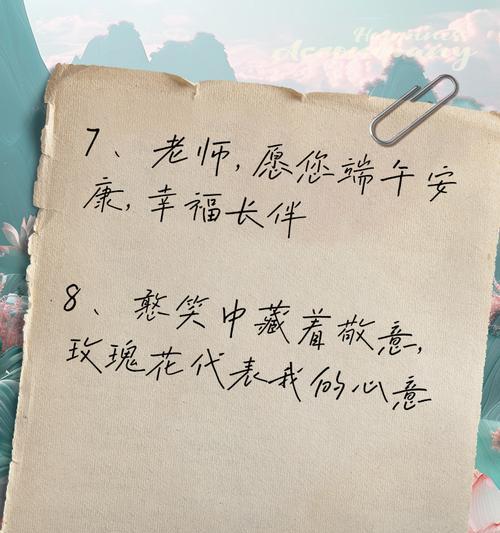 Happiness
7、老师,愿您端午安
康,幸福长伴
8、憨笑中藏着敬意,
玫瑰花代表我的心意